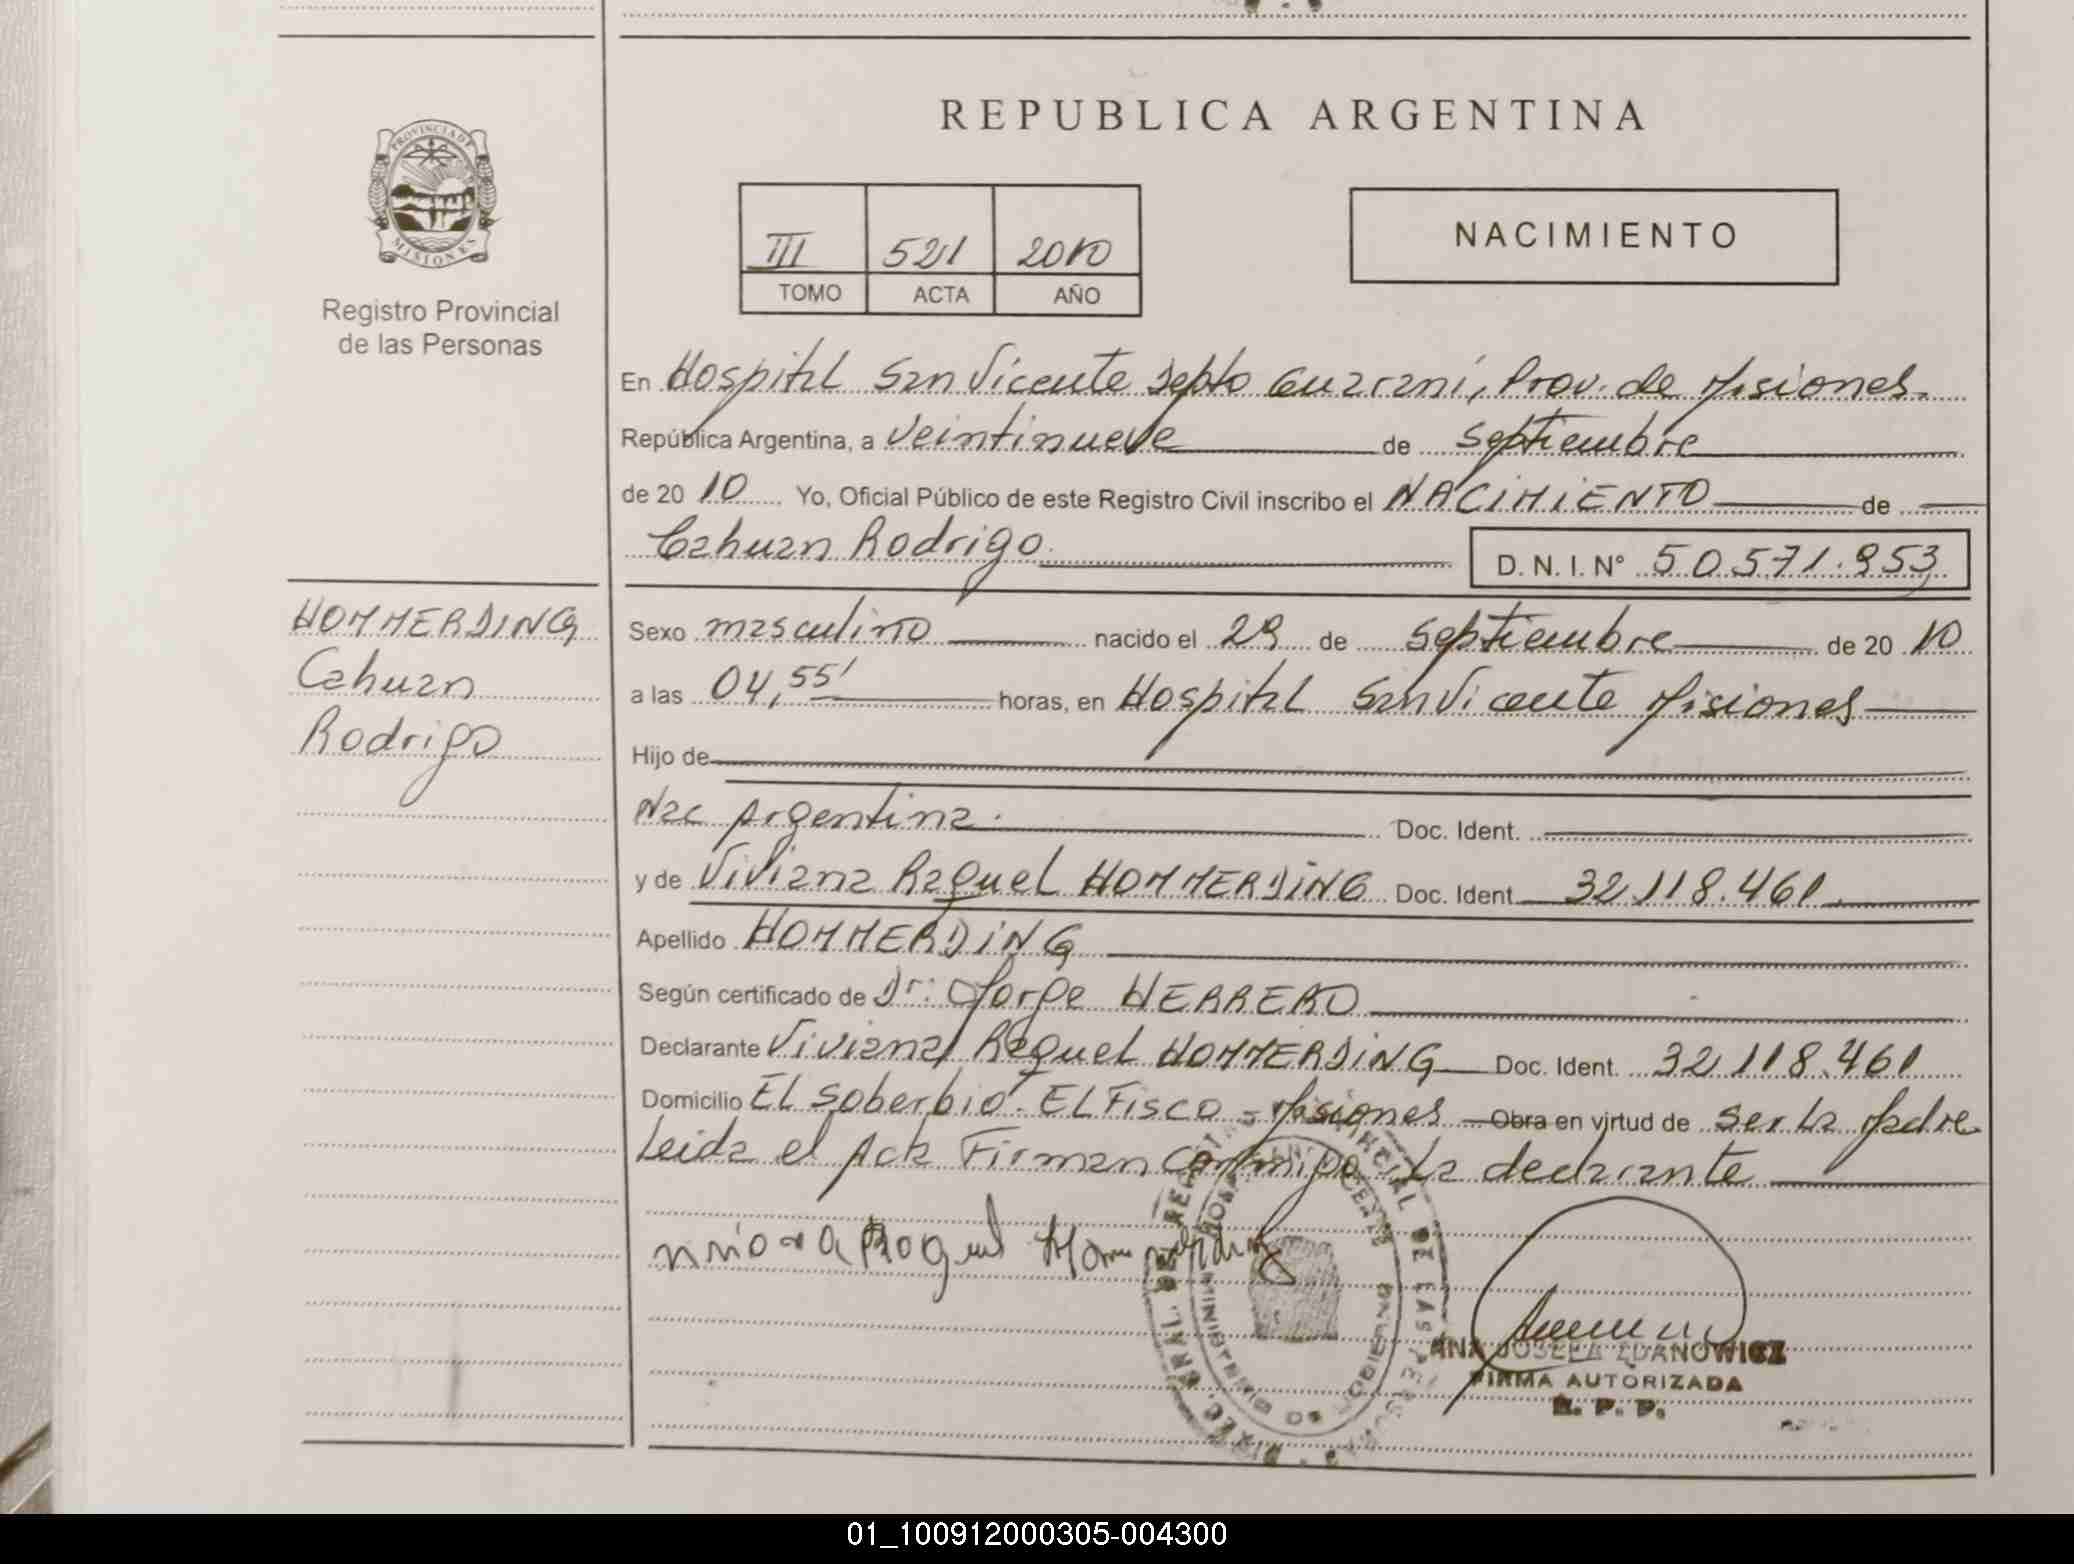 REPUBLICA ARGENTINA
PROVINCIA DE
MISIONES
Registro Provincial
de las Personas
III 521 2010
TOMO ACTA AÑO
NACIMIENTO
En Hospital San Vicente Depto Guarani, Prov. de Misiones.
República Argentina, a veintinueve de septiembre
de 20 10 Yo, Oficial Público de este Registro Civil inscribo el NACIMIENTO de
Cahuan Rodrigo. D. N. I. N° 50.571.953
HOMMERDING
Cahuan
Rodrigo
Sexo masculino nacido el 29 de septiembre de 20 10
a las 04,55' horas, en Hospital San Vicente Misiones
Hijo de
Nac Argentina. Doc. Ident.
y de Viviana Raquel HOMMERDING Doc. Ident. 32.118.461
Apellido HOMMERDING
Según certificado de Dr: Jorge HERRERO
Declarante Viviana Raquel HOMMERDING Doc. Ident. 32.118.461
Domicilio El Soberbio - El Fisco - Misiones Obra en virtud de ser la Madre
Leida el Acta Firman conmigo la declarante
ANA JOSEFA ZDANOWICZ
FIRMA AUTORIZADA
R. P. P.
01_100912000305-004300